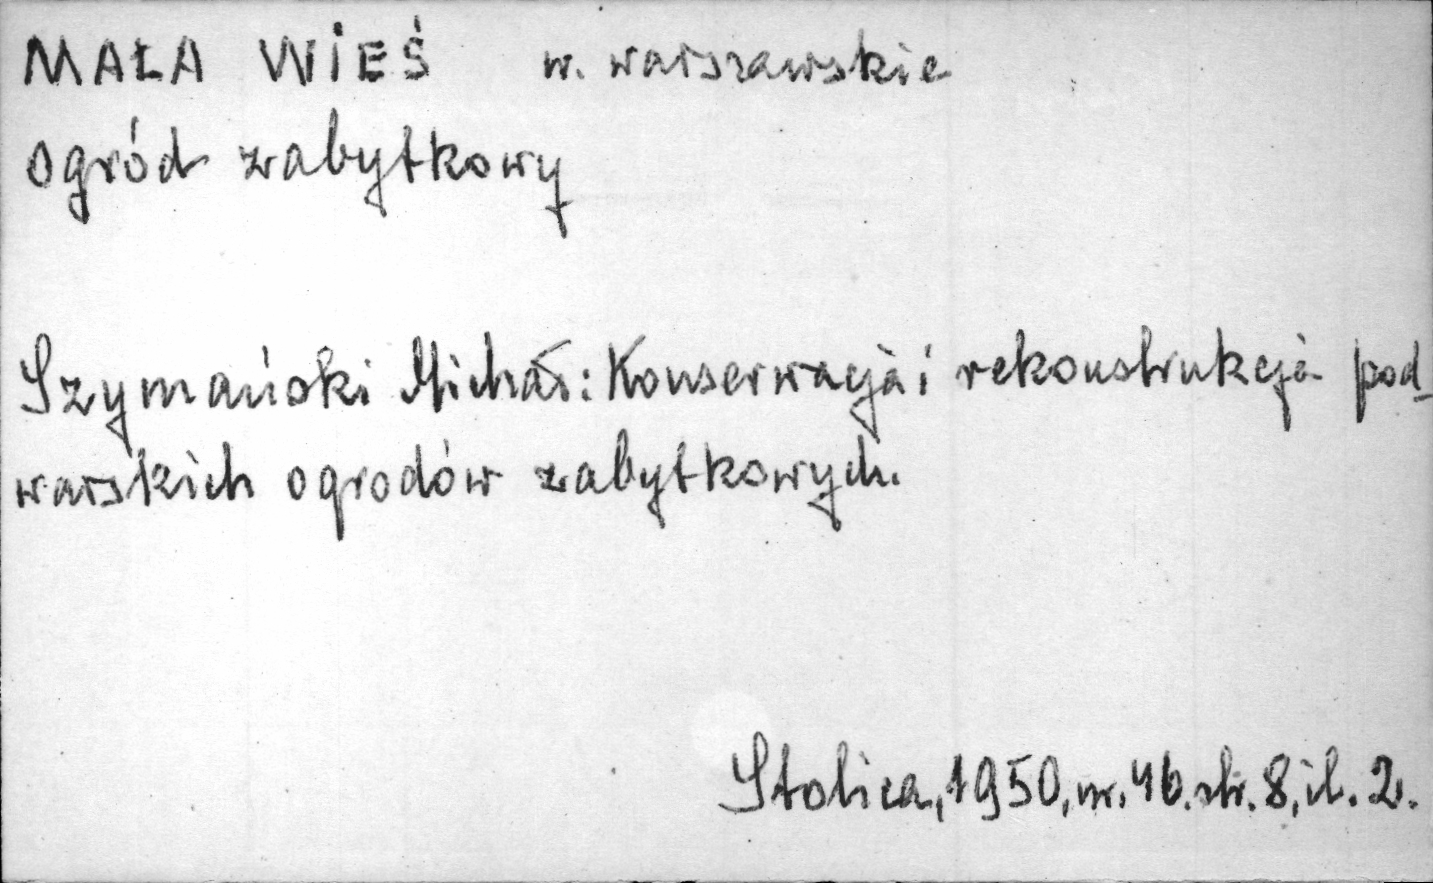 MAŁA WIEŚ w. warszawskie
ogród zabytkowy
Szymański Michał: Konserwacja i rekonstrukcja pod-
warskich ogrodów zabytkowych.
Stolica, 1950, nr. 46. str. 8, il. 2.